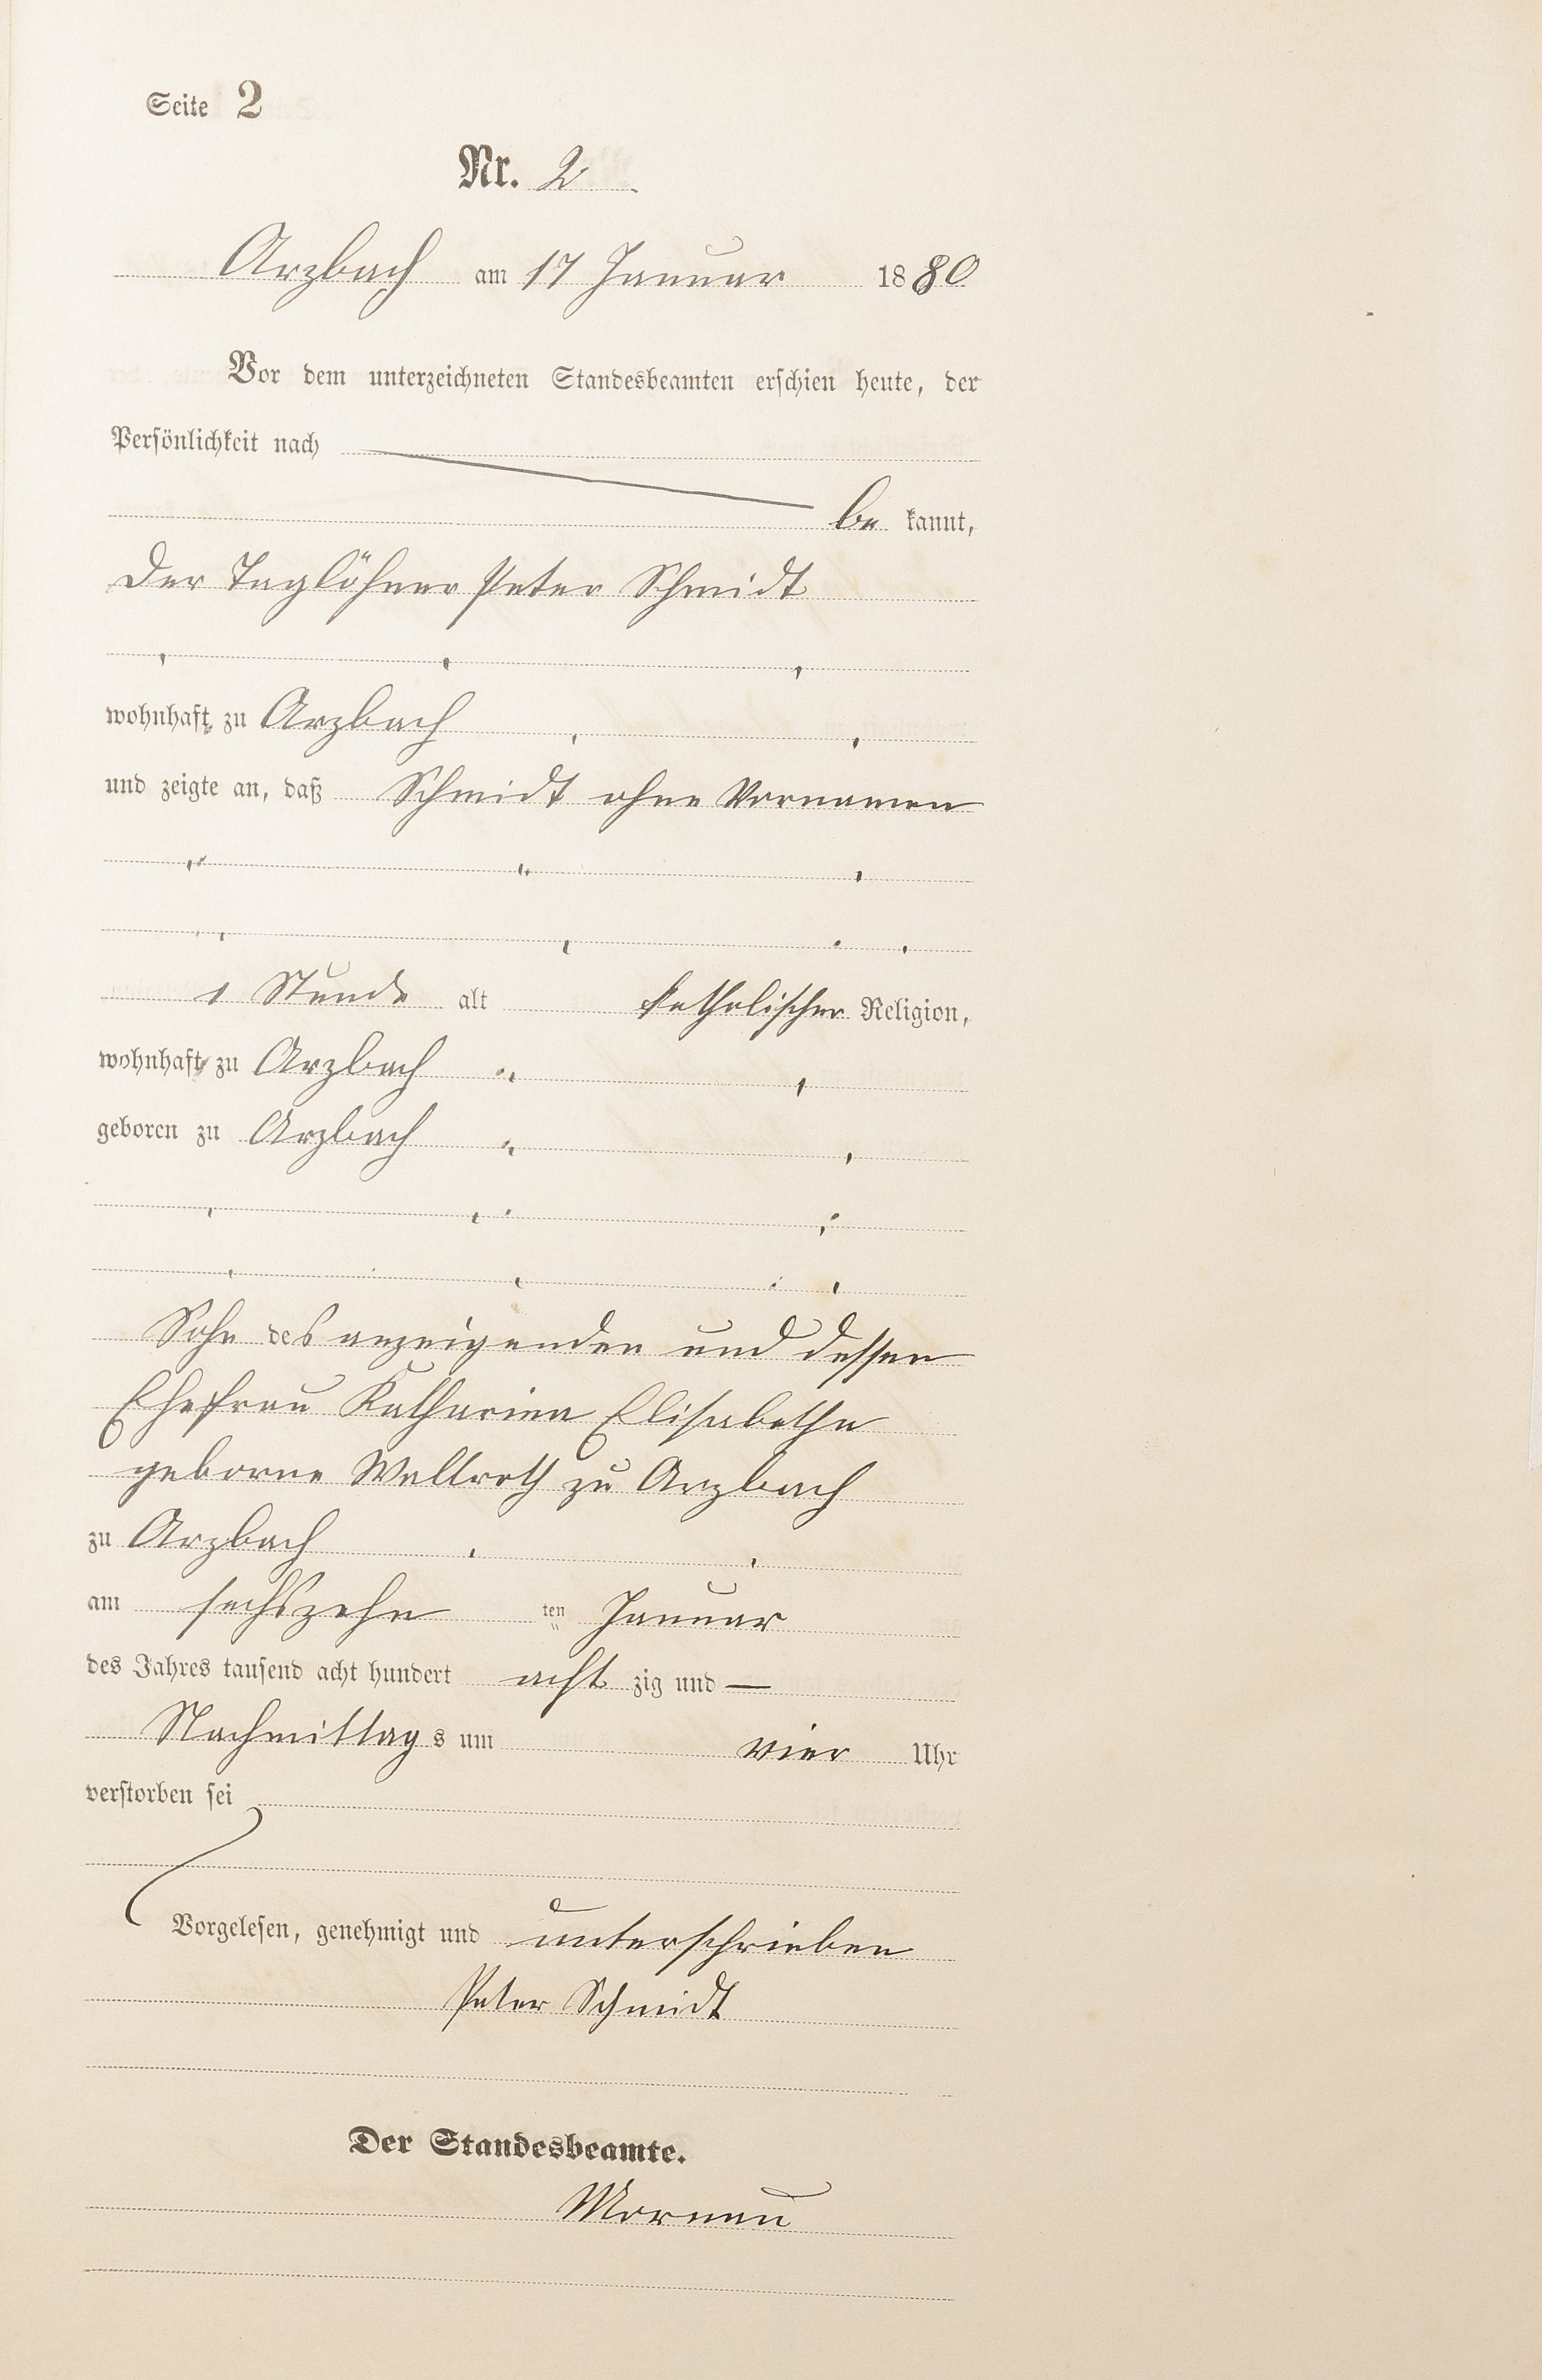 Seite 2
Nr. 2
Arzbach am 17 Januar 1880
Vor dem unterzeichneten Standesbeamten erschien heute, der
Persönlichkeit nach
be kannt,
der Taglöhner Peter Schmidt
wohnhaft zu Arzbach
und zeigte an, daß Schmidt ohne Vornamen
1 Stunde alt katholischer Religion,
wohnhaft zu Arzbach
geboren zu Arzbach
Sohn des anzeigenden und dessen
Ehefrau Katharina Elisabetha
geborne Wallroth zu Arzbach
zu Arzbach
am sechszehn ten Januar
des Jahres tausend acht hundert acht zig und —
Nachmittags um vier Uhr
verstorben sei
Vorgelesen, genehmigt und unterschrieben
Peter Schmidt
Der Standesbeamte.